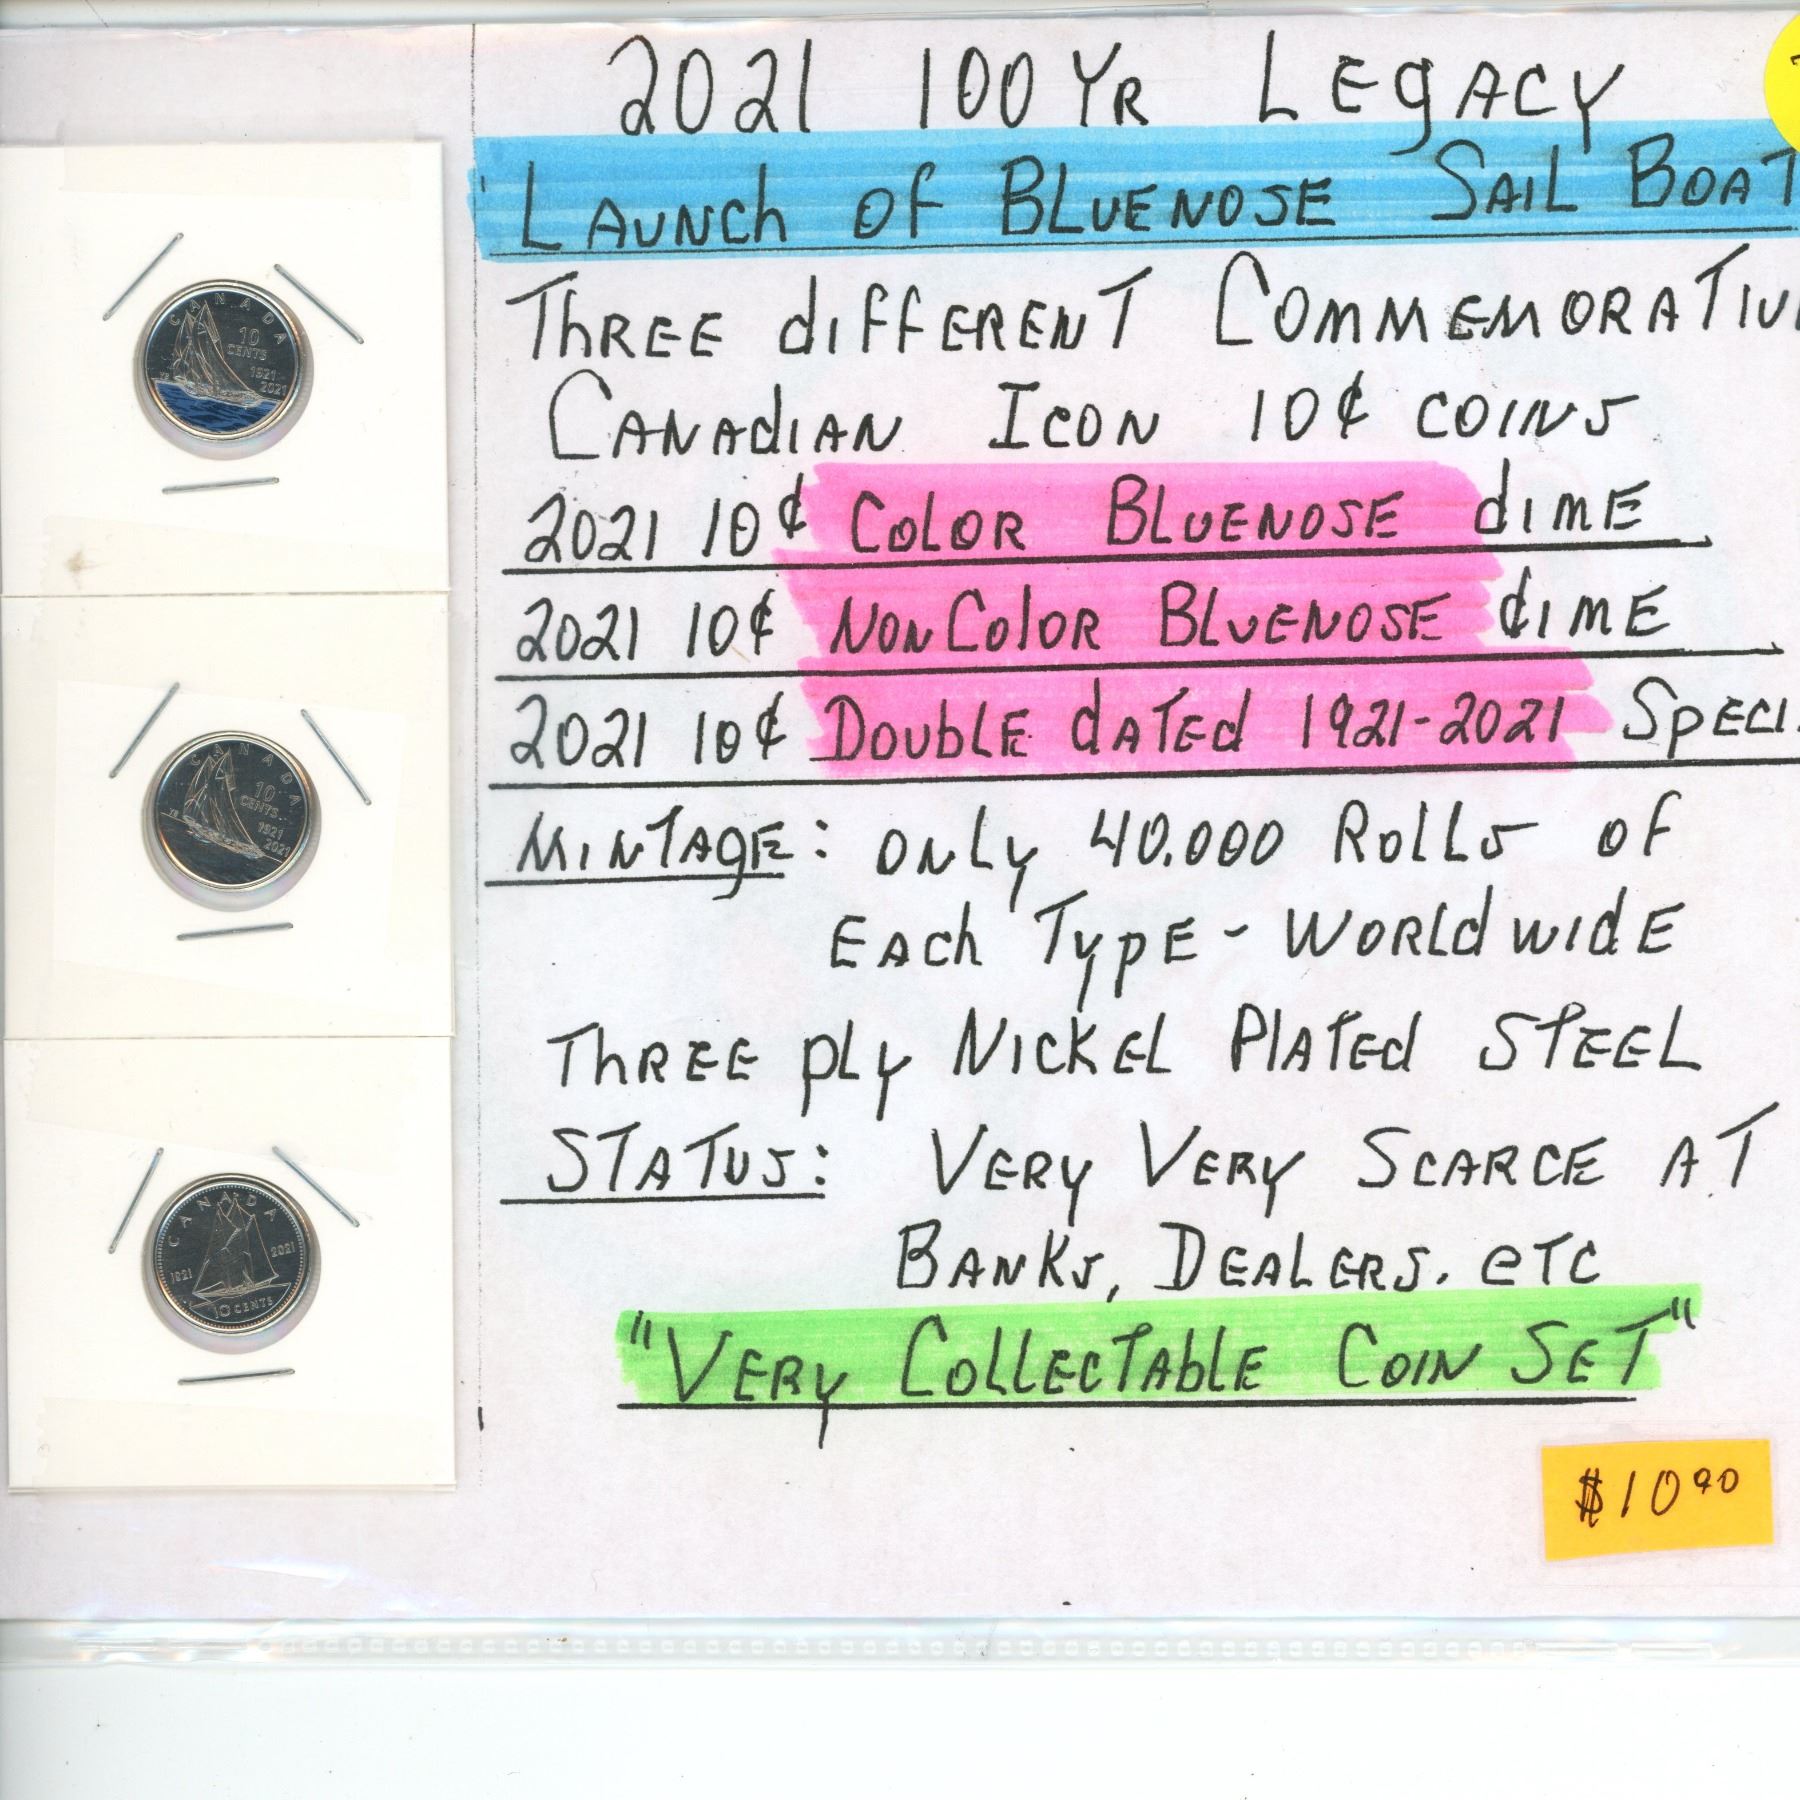 2021 100 YR LEGACY
LAUNCH OF BLUENOSE SAIL BOAT
THREE dIFFERENT COMMEMORATIV
CANADIAN ICON 10¢ COINS
2021 10¢ COLOR BLUENOSE dIME
2021 10¢ NONCOLOR BLUENOSE dIME
2021 10¢ DOUBLE dATEd 1921-2021 SPECI
MINTAGE: ONLY 40.000 ROLLS OF
EACH TYPE - WORLDWIDE
THREE PLY NICKEL PLATEd STEEL
STATUS: VERY VERY SCARCE AT
BANKS, DEALERS. eTC
"VERY COLLECTABLE COIN SET"
$10.90
CANADA
10
CENTS
1921
2021
CANADA
10
CENTS
1921
2021
CANADA
1921
2021
10 CENTS